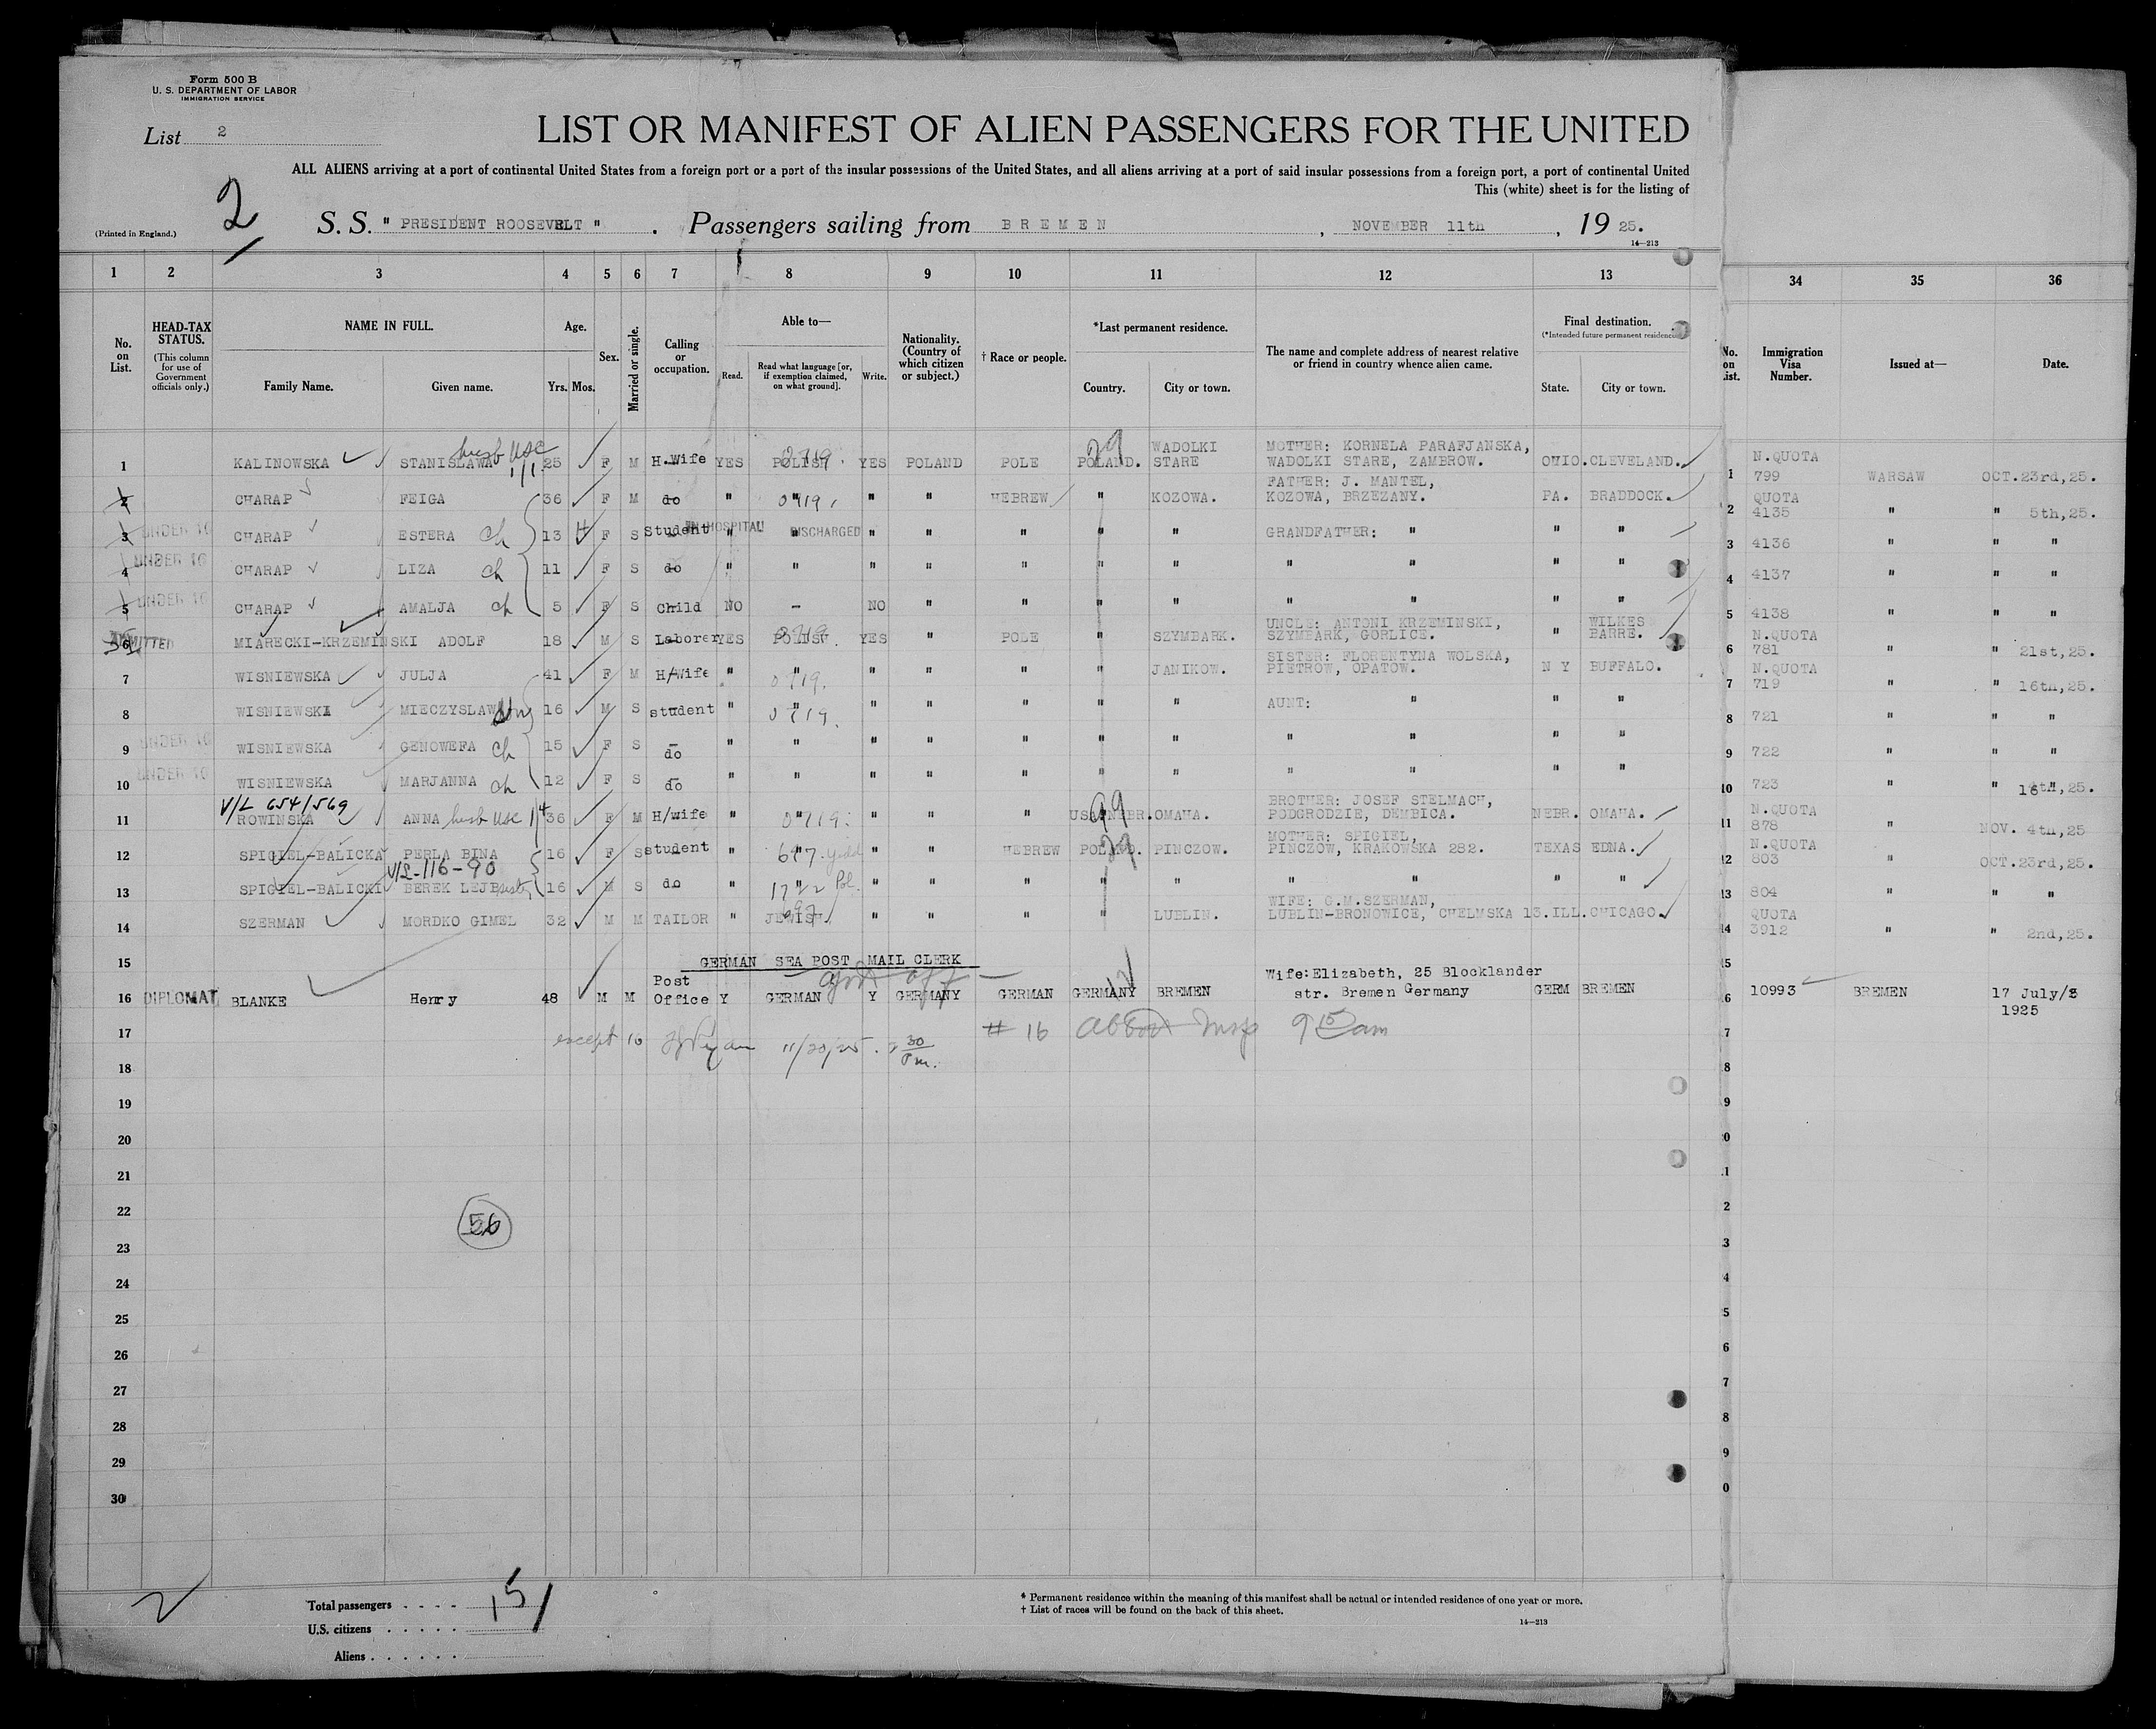 Form 500 B
U. S. DEPARTMENT OF LABOR
IMMIGRATION SERVICE
List 2
LIST OR MANIFEST OF ALIEN PASSENGERS FOR THE UNITED
ALL ALIENS arriving at a port of continental United States from a foreign port or a port of the insular possessions of the United States, and all aliens arriving at a port of said insular possessions from a foreign port, a port of continental United
This (white) sheet is for the listing of
(Printed in England.)
2
S. S. " PRESIDENT ROOSEVELT ". Passengers sailing from BREMEN, NOVEMBER 11th, 19 25.
14—213
1 2 3 4 5 6 7 8 9 10 11 12 13 34 35 36
No. on List.
HEAD-TAX STATUS.
(This column for use of Government officials only.)
NAME IN FULL.
Family Name. Given name.
Age.
Yrs. Mos.
Sex.
Married or single.
Calling or occupation.
Able to—
Read. Read what language [or, if exemption claimed, on what ground]. Write.
Nationality. (Country of which citizen or subject.)
† Race or people.
*Last permanent residence.
Country. City or town.
The name and complete address of nearest relative or friend in country whence alien came.
Final destination.
(*Intended future permanent residence.)
State. City or town.
No. on List.
Immigration Visa Number.
Issued at—
Date.
husb USC
1 KALINOWSKA STANISLAWA 25 F M H.Wife YES POLISH YES POLAND POLE POLAND. WADOLKI STARE MOTHER: KORNELA PARAFJANSKA, WADOLKI STARE, ZAMBROW. OHIO. CLEVELAND. 1 N.QUOTA 799 WARSAW OCT.23rd,25.
2 CHARAP FEIGA 36 F M do " " " " HEBREW " KOZOWA. FATHER: J. MANTEL, KOZOWA, BRZEZANY. PA. BRADDOCK. 2 QUOTA 4135 " " 5th,25.
3 UNDER 16 CHARAP ESTERA ch 13 F S Student IN HOSPITAL " " DISCHARGED " " " " " GRANDFATHER: " " " 3 4136 " " "
4 UNDER 16 CHARAP LIZA ch 11 F S do " " " " " " " " " " " 4 4137 " " "
5 UNDER 16 CHARAP AMALJA ch 5 F S Child NO - NO " " " " " " " " 5 4138 " " "
6 ADMITTED MIARECKI-KRZEMINSKI ADOLF 18 M S Laborer YES POLISH. YES " POLE " SZYMBARK. UNCLE: ANTONI KRZEMINSKI, SZYMBARK, GORLICE. " WILKES BARRE. 6 N.QUOTA 781 " " 21st,25.
7 WISNIEWSKA JULJA 41 F M H/Wife " " " " " " JANIKOW. SISTER: FLORENTYNA WOLSKA, PIETROW, OPATOW. N Y BUFFALO. 7 N.QUOTA 719 " " 16th,25.
8 WISNIEWSKI MIECZYSLAW son 16 M S student " " " " " " " AUNT: " " " 8 721 " " "
9 UNDER 16 WISNIEWSKA GENOWEFA ch 15 F S do " " " " " " " " " " " 9 722 " " "
10 UNDER 16 WISNIEWSKA MARJANNA ch 12 F S do " " " " " " " " " " " 10 723 " " 16th,25.
V/L 654/569
11 ROWINSKA ANNA husb USC 36 F M H/wife " " " " " USA NEBR. OMAHA. BROTHER: JOSEF STELMACH, PODGRODZIE, DEMBICA. NEBR. OMAHA. 11 N.QUOTA 878 " NOV. 4th,25
12 SPIGIEL-BALICKA PERLA BINA 16 F S student " " " " HEBREW POLAND. PINCZOW. MOTHER: SPIGIEL, PINCZOW, KRAKOWSKA 282. TEXAS EDNA. 12 N.QUOTA 803 OCT.23rd,25.
V/L-116-90
13 SPIGIEL-BALICKI BEREK LEJB 16 M S do " " Pol. " " " " " " " " " 13 804 " " "
14 SZERMAN MORDKO GIMEL 32 M M TAILOR " JEWISH " " " " LUBLIN. WIFE: G.M.SZERMAN, LUBLIN-BRONOWICE, CHELMSKA 13. ILL. CHICAGO. 14 QUOTA 3912 " " 2nd,25.
15 GERMAN SEA POST MAIL CLERK 15
16 DIPLOMAT BLANKE Henry 48 M M Post Office Y GERMAN Y GERMANY GERMAN GERMANY BREMEN Wife: Elizabeth, 25 Blocklander str. Bremen Germany GERM BREMEN 6 10993 BREMEN 17 July/ 1925
17 except 16 11/20/25 30 Pm. # 16 Insp 9 15 am 7
18 8
19 9
20 0
21 1
22 2
56
23 3
24 4
25 5
26 6
27 7
28 8
29 9
30 0
2
Total passengers . . . . 15
U.S. citizens . . . . .
Aliens . . . . . .
* Permanent residence within the meaning of this manifest shall be actual or intended residence of one year or more.
† List of races will be found on the back of this sheet.
14—213